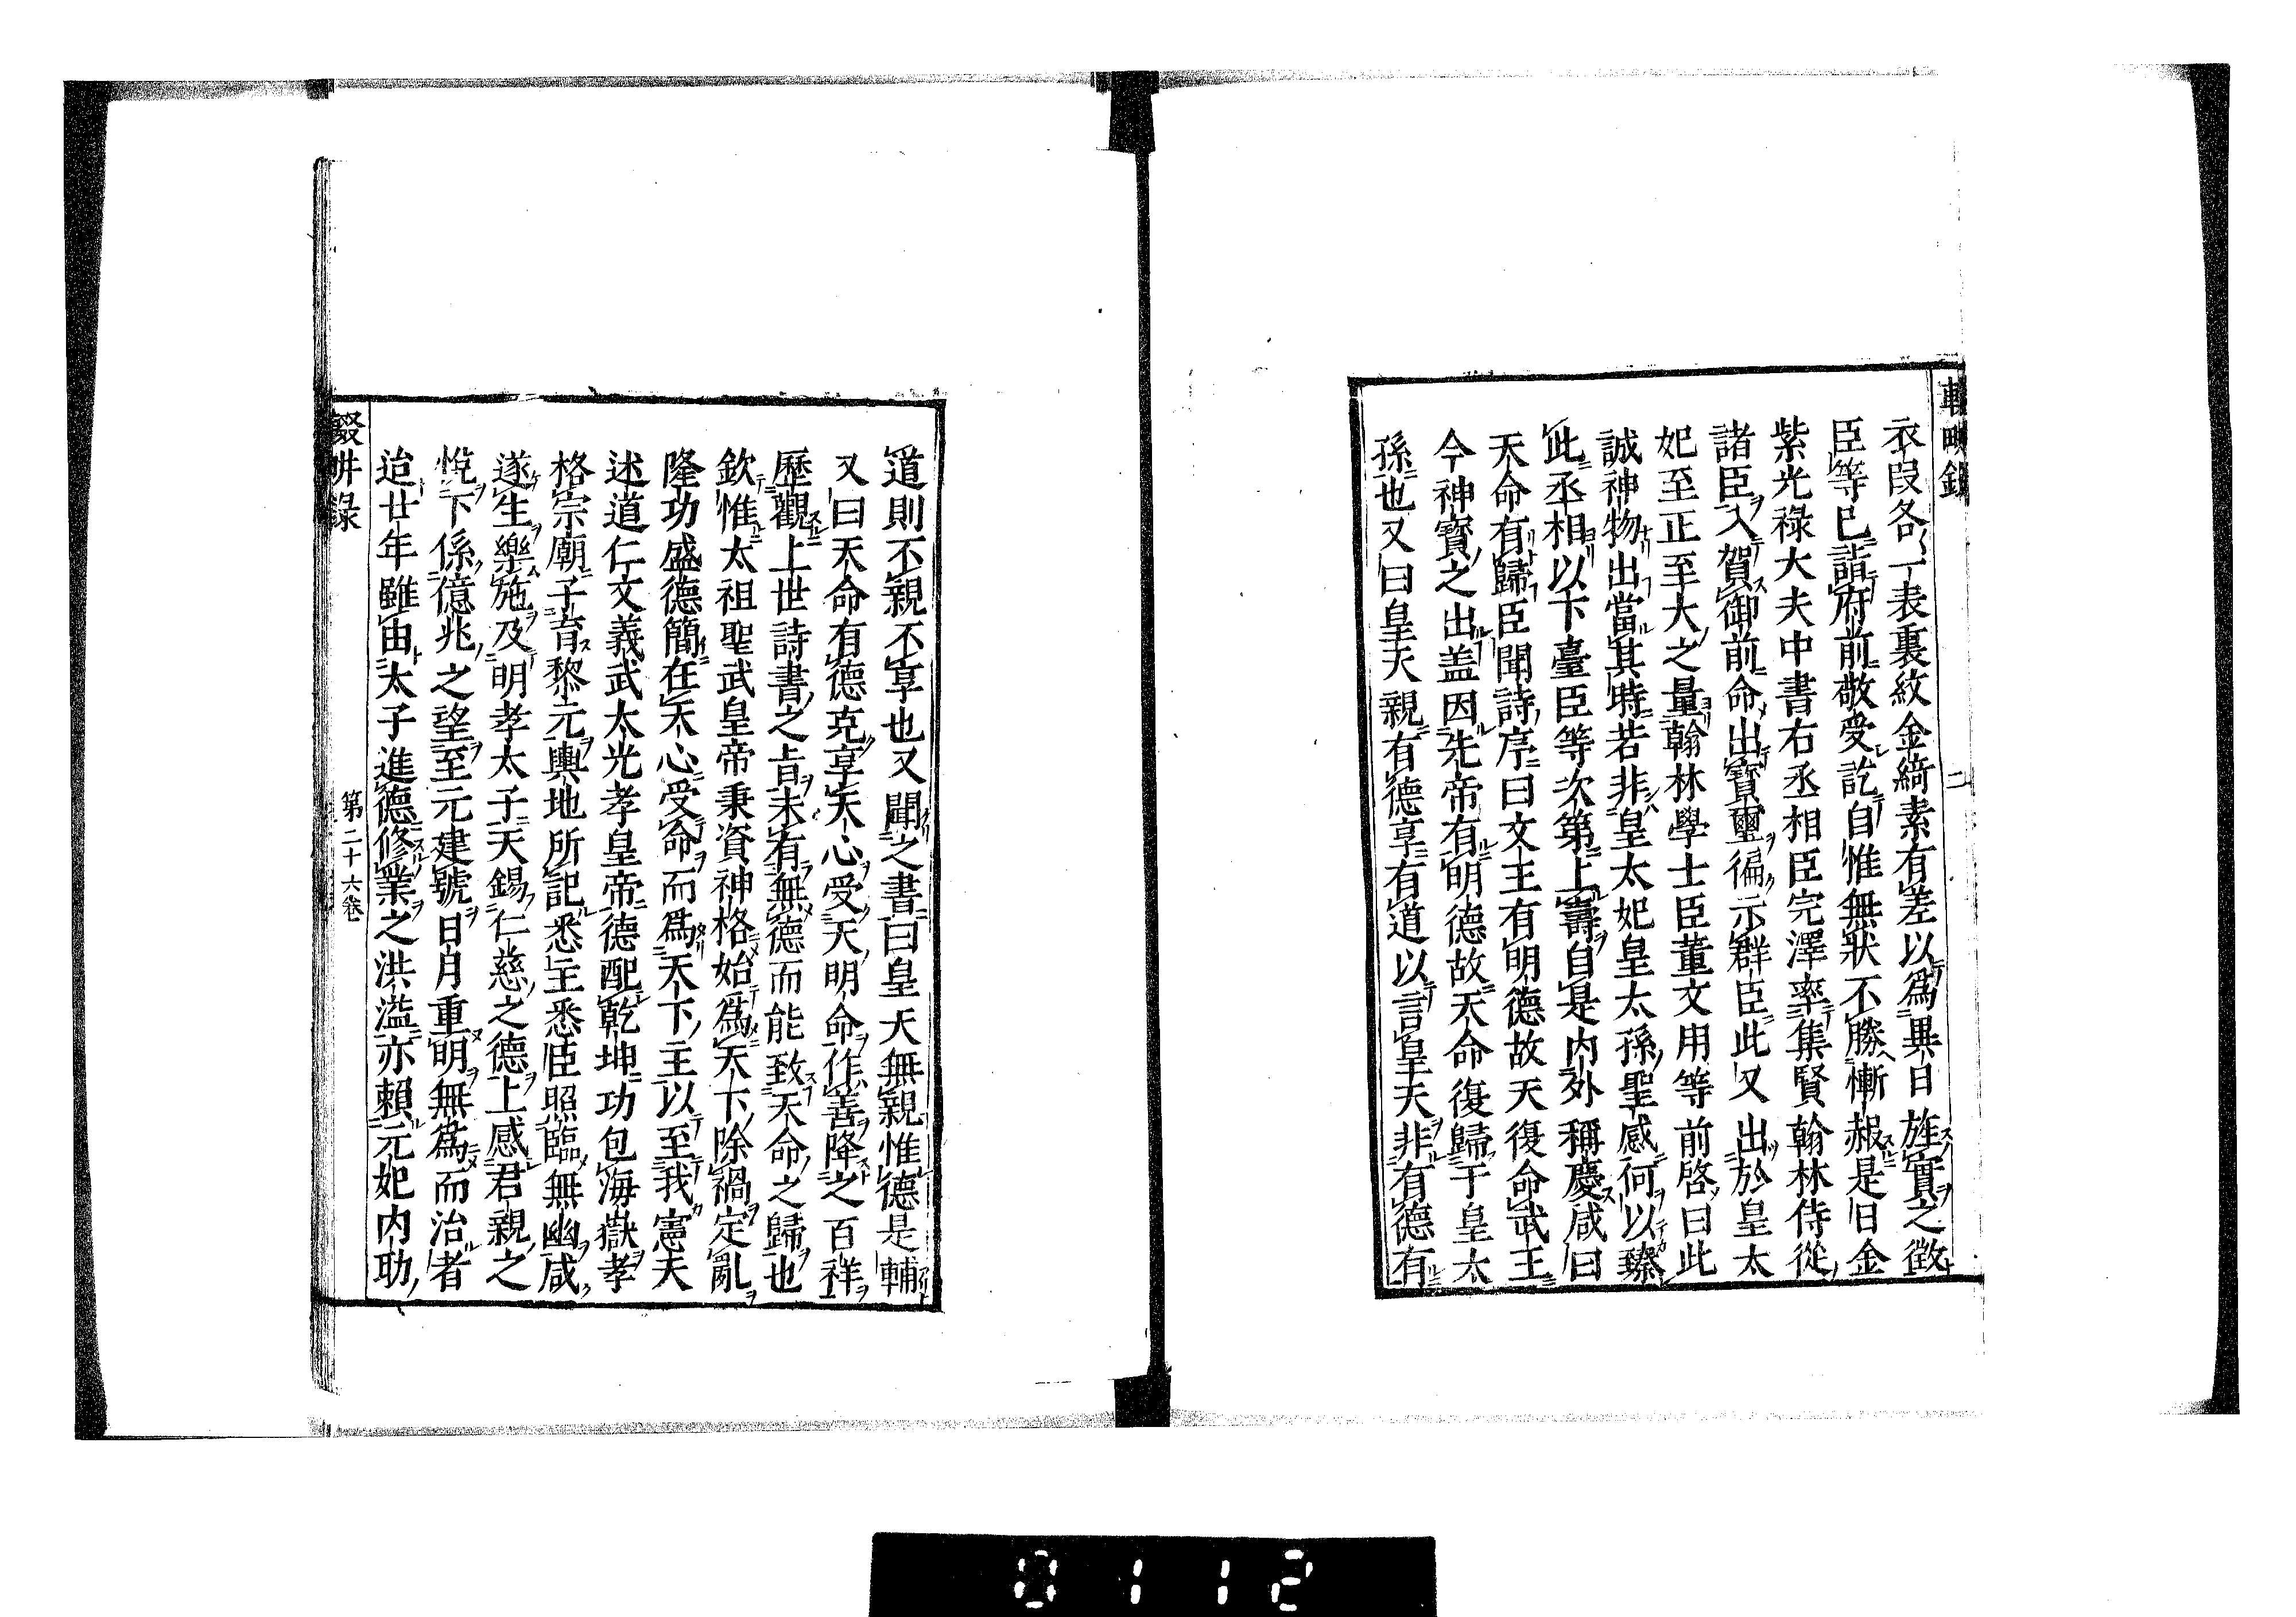 輟畊錄
二
衣段各一表裏紋金綺素有差以爲異日旌實之徵
臣等已詣府前敬受訖自惟無狀不勝慚赧是日金
紫光祿大夫中書右丞相臣完澤率集賢翰林侍從
諸臣入賀御前命出寶璽徧示群臣此又出於皇太
妃至正至大之量翰林學士臣董文用等前啓曰此
誠神物出當其時若非皇太妃皇太孫聖感何以臻
此丞相以下臺臣等次第上壽自是内外稱慶咸曰
天命有歸臣聞詩序曰文王有明德故天復命武王
今神寶之出盖因先帝有明德故天命復歸于皇太
孫也又曰皇天親有德享有道以言皇天非有德有
道則不親不享也又聞之書曰皇天無親惟德是輔
又曰天命有德克享天心受天明命作善降之百祥
歷觀上世詩書之旨未有無德而能致天命之歸也
欽惟太祖聖武皇帝秉資神格始爲天下除禍定亂
隆功盛德簡在天心受命而爲天下主以至我憲天
述道仁文義武大光孝皇帝德配乾坤功包海嶽孝
格宗廟子育黎元輿地所記悉主悉臣照臨無幽咸
遂生樂施及明孝太子天錫仁慈之德上感君親之
悅下係億兆之望至元建號日月重明無爲而治者
迨廿年雖由太子進德修業之洪溢亦賴元妃内助
輟畊錄
第二十六卷
0112